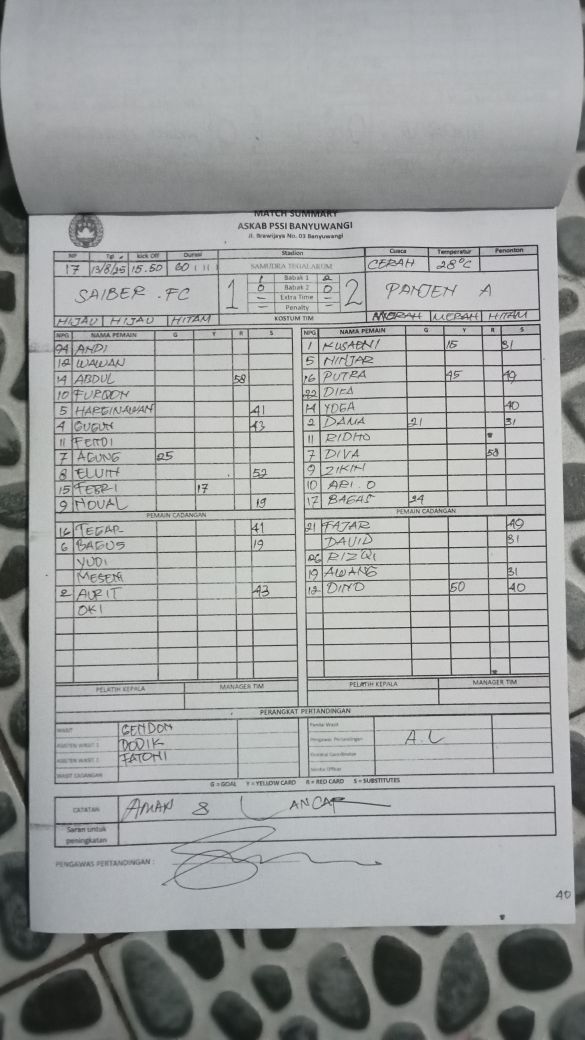 MATCH SUMMARY
ASKAB PSSI BANYUWANGI
Jl. Brawijaya No. 03 Banyuwangi
Tgl Kick Off Durasi Stadion Cuaca Temperatur Penonton
17 13/8/25 15.50 60 SAMUDRA TEGALARUM CERAH 28°C
SAIBER . FC 1 1 Babak 1 2 2 PANJEN A
0 Babak 2 0
= Extra Time =
= Penalty =
HIJAU HIJAU HITAM KOSTUM TIM MERAH MERAH HITAM
NPG NAMA PEMAIN G Y R S NPG NAMA PEMAIN G Y R S
94 ANDI 1 KUSAENI 15 31
12 WAWAN 5 NINJAR
14 ABDUL 58 16 PUTRA 45 49
10 FURQON 22
5 41 14 YOGA 40
4 GUGUN 43 2 DAMA 21 31
11 FENDI 11 RIDHO
7 AGUNG 25 7 DIVA 58
8 52 9 ZIKIN
15 FEBRI 17 10 ARI . O
9 NOVAL 19 17 BAGAS 24
PEMAIN CADANGAN PEMAIN CADANGAN
16 TEGAR 41 21 FAJAR 49
6 BAGUS 19 DAVID 31
YUDI RIZQI
MESENI 19 AWANG 31
2 AURIT 43 12 DINO 50 40
OKI
PELATIH KEPALA MANAGER TIM PELATIH KEPALA MANAGER TIM
PERANGKAT PERTANDINGAN
WASIT GENDON
ASISTEN WASIT 1 DODIK Pengawas Pertandingan A.L
ASISTEN WASIT 2 FATONI
WASIT CADANGAN
G = GOAL Y = YELLOW CARD R = RED CARD S = SUBSTITUTES
CATATAN AMAN & LANCAR
Saran untuk
peningkatan
PENGAWAS PERTANDINGAN :
40